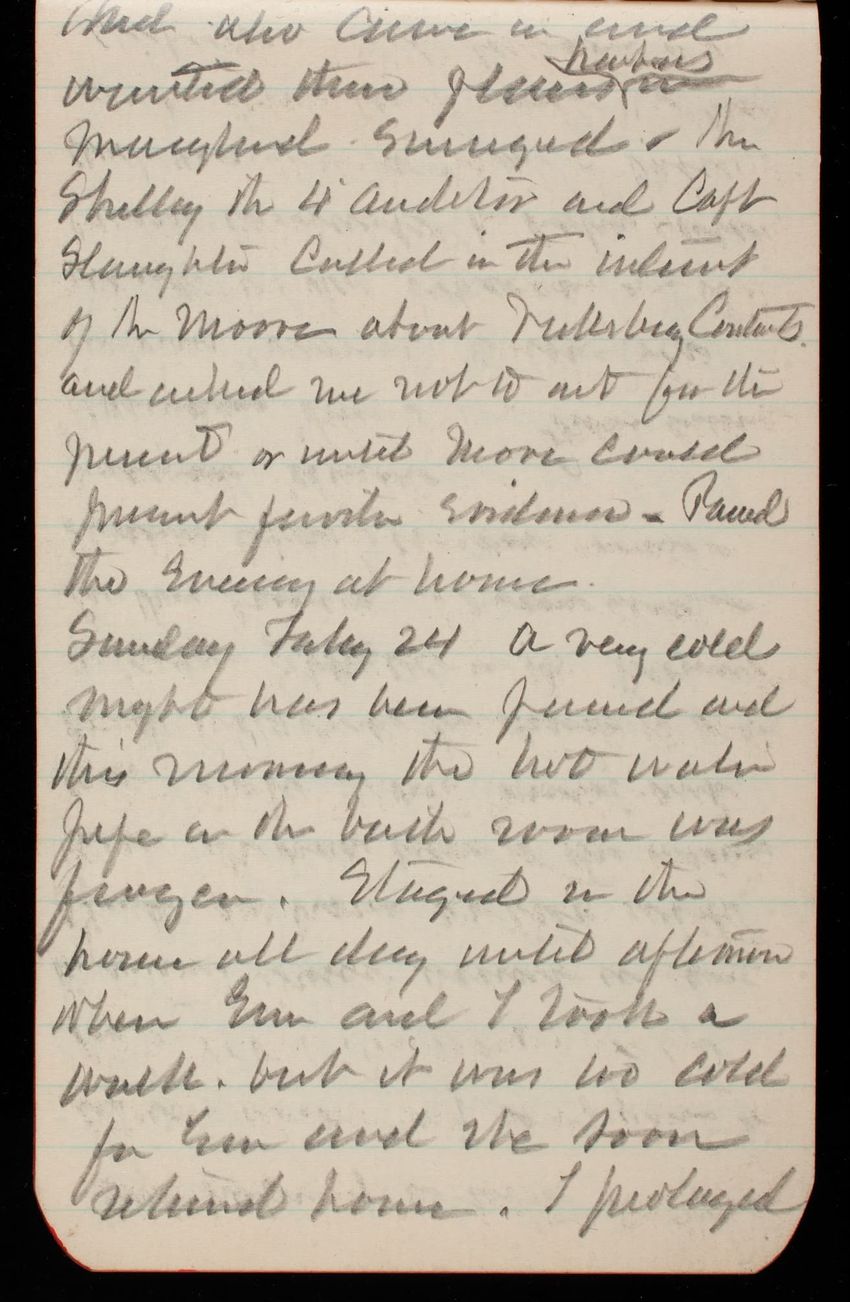 and also came in and
wanted three places harbors
Maryland Surveyed. Mr
Shelley the 4' Auditor and Capt
Slaughter called in the interest
of Mr Moore about Vicksburg Contracts.
and asked me not to act for the
present or until Moore could
present further Evidence - Passed
the Evening at home.
Sunday Feby 24 A very cold
night has been passed and
this morning the hot water
pipe in the bath room was
frozen. Stayed in the
house all day until afternoon
when Em and I took a
walk. but it was too cold
for Em and she soon
returned home. I prolonged